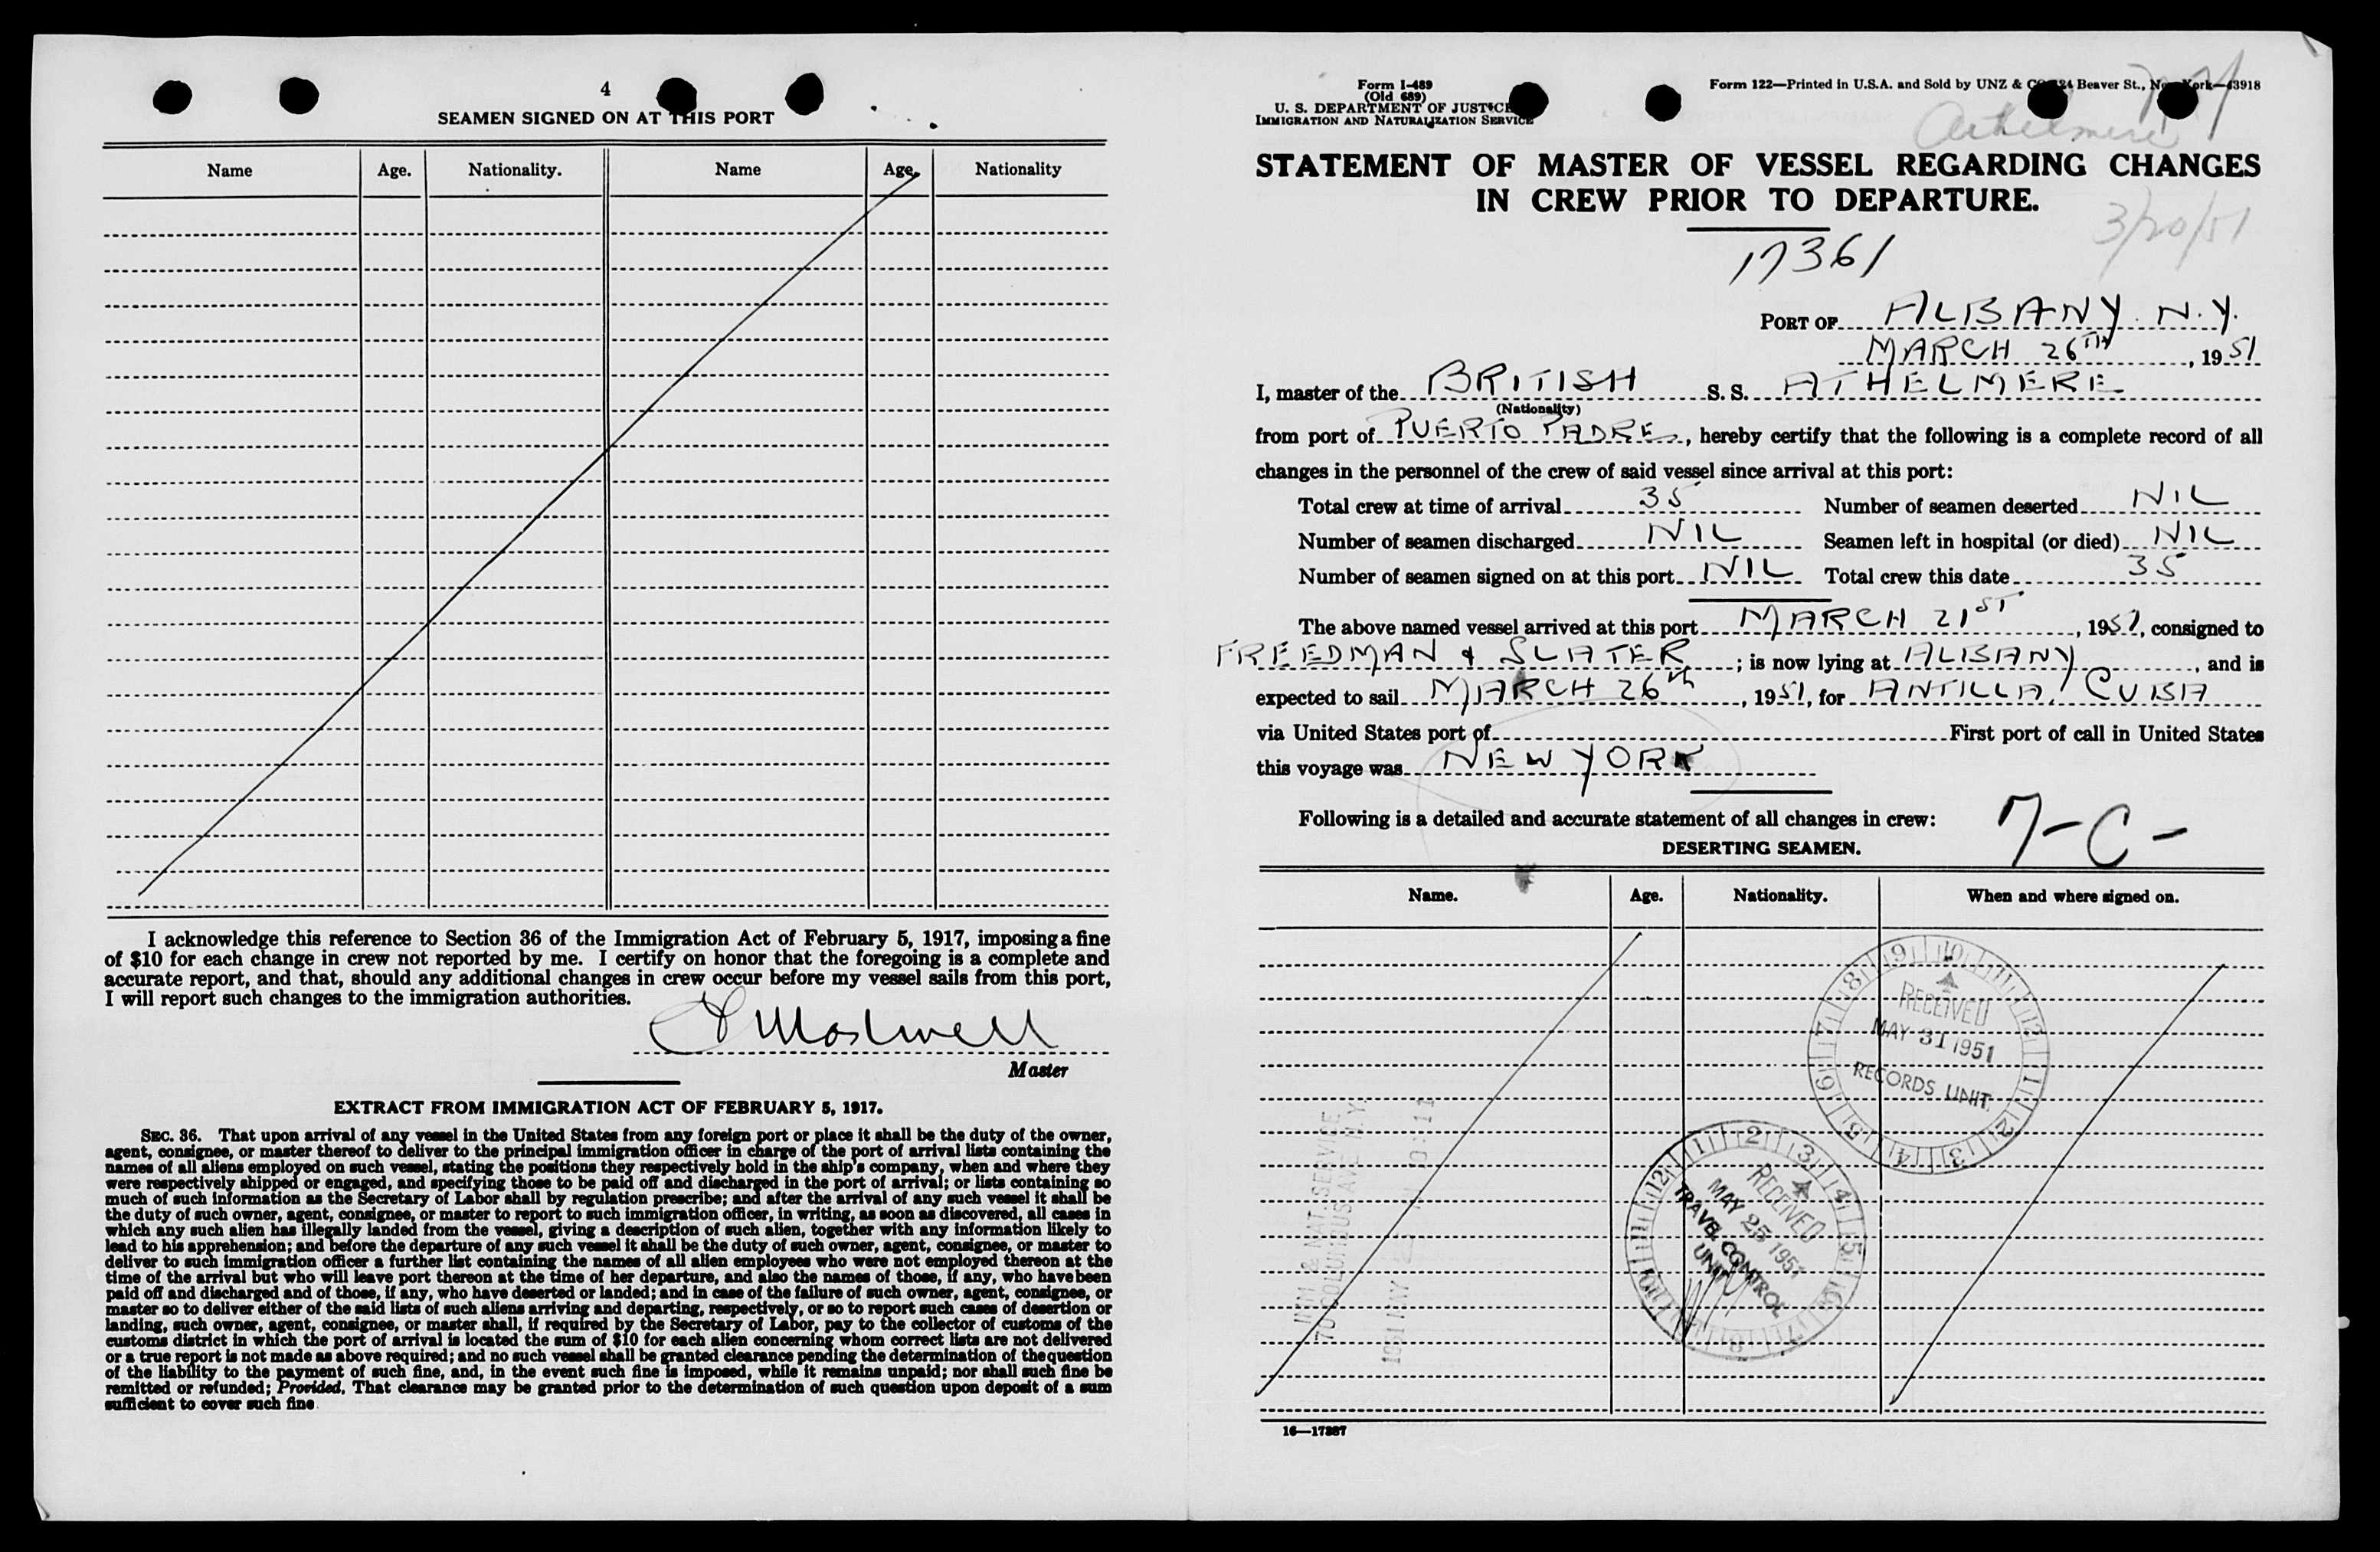 4
SEAMEN SIGNED ON AT THIS PORT
Name Age. Nationality. Name Age. Nationality
I acknowledge this reference to Section 36 of the Immigration Act of February 5, 1917, imposing a fine
of $10 for each change in crew not reported by me. I certify on honor that the foregoing is a complete and
accurate report, and that, should any additional changes in crew occur before my vessel sails from this port,
I will report such changes to the immigration authorities.
Master
EXTRACT FROM IMMIGRATION ACT OF FEBRUARY 5, 1917.
SEC. 36. That upon arrival of any vessel in the United States from any foreign port or place it shall be the duty of the owner,
agent, consignee, or master thereof to deliver to the principal immigration officer in charge of the port of arrival lists containing the
names of all aliens employed on such vessel, stating the positions they respectively hold in the ship's company, when and where they
were respectively shipped or engaged, and specifying those to be paid off and discharged in the port of arrival; or lists containing so
much of such information as the Secretary of Labor shall by regulation prescribe; and after the arrival of any such vessel it shall be
the duty of such owner, agent, consignee, or master to report to such immigration officer, in writing, as soon as discovered, all cases in
which any such alien has illegally landed from the vessel, giving a description of such alien, together with any information likely to
lead to his apprehension; and before the departure of any such vessel it shall be the duty of such owner, agent, consignee, or master to
deliver to such immigration officer a further list containing the names of all alien employees who were not employed thereon at the
time of the arrival but who will leave port thereon at the time of her departure, and also the names of those, if any, who have been
paid off and discharged and of those, if any, who have deserted or landed; and in case of the failure of such owner, agent, consignee, or
master so to deliver either of the said lists of such aliens arriving and departing, respectively, or so to report such cases of desertion or
landing, such owner, agent, consignee, or master shall, if required by the Secretary of Labor, pay to the collector of customs of the
customs district in which the port of arrival is located the sum of $10 for each alien concerning whom correct lists are not delivered
or a true report is not made as above required; and no such vessel shall be granted clearance pending the determination of the question
of the liability to the payment of such fine, and, in the event such fine is imposed, while it remains unpaid; nor shall such fine be
remitted or refunded; Provided, That clearance may be granted prior to the determination of such question upon deposit of a sum
sufficient to cover such fine.
Form I-489
(Old 689)
U. S. DEPARTMENT OF JUSTICE
IMMIGRATION AND NATURALIZATION SERVICE
Form 122—Printed in U.S.A. and Sold by UNZ & CO., 24 Beaver St., New York—43918
Athelmere
STATEMENT OF MASTER OF VESSEL REGARDING CHANGES
IN CREW PRIOR TO DEPARTURE.
3/20/51
17361
PORT OF ALBANY. N.Y.
MARCH 26TH, 1951
I, master of the BRITISH S. S. ATHELMERE
(Nationality)
from port of PUERTO PADRE, hereby certify that the following is a complete record of all
changes in the personnel of the crew of said vessel since arrival at this port:
Total crew at time of arrival 35 Number of seamen deserted NIL
Number of seamen discharged NIL Seamen left in hospital (or died) NIL
Number of seamen signed on at this port NIL Total crew this date 35
The above named vessel arrived at this port MARCH 21ST, 1951, consigned to
FREEDMAN & SLATER; is now lying at ALBANY, and is
expected to sail MARCH 26th, 1951, for ANTILLA, CUBA
via United States port of First port of call in United States
this voyage was NEW YORK
Following is a detailed and accurate statement of all changes in crew: 7-C-
DESERTING SEAMEN.
Name. Age. Nationality. When and where signed on.
9 10 11 12 1 2 3 4 5 6 7 8
RECEIVED
MAY 31 1951
RECORDS UNIT
12 1 2 3 4 5 6 7 8 9 10 11
RECEIVED
MAY 25 1951
TRAVEL CONTROL
UNIT
IMM & NAT. SERVICE
70 COLUMBUS AVE N.Y.
1951 MAY
16—17387